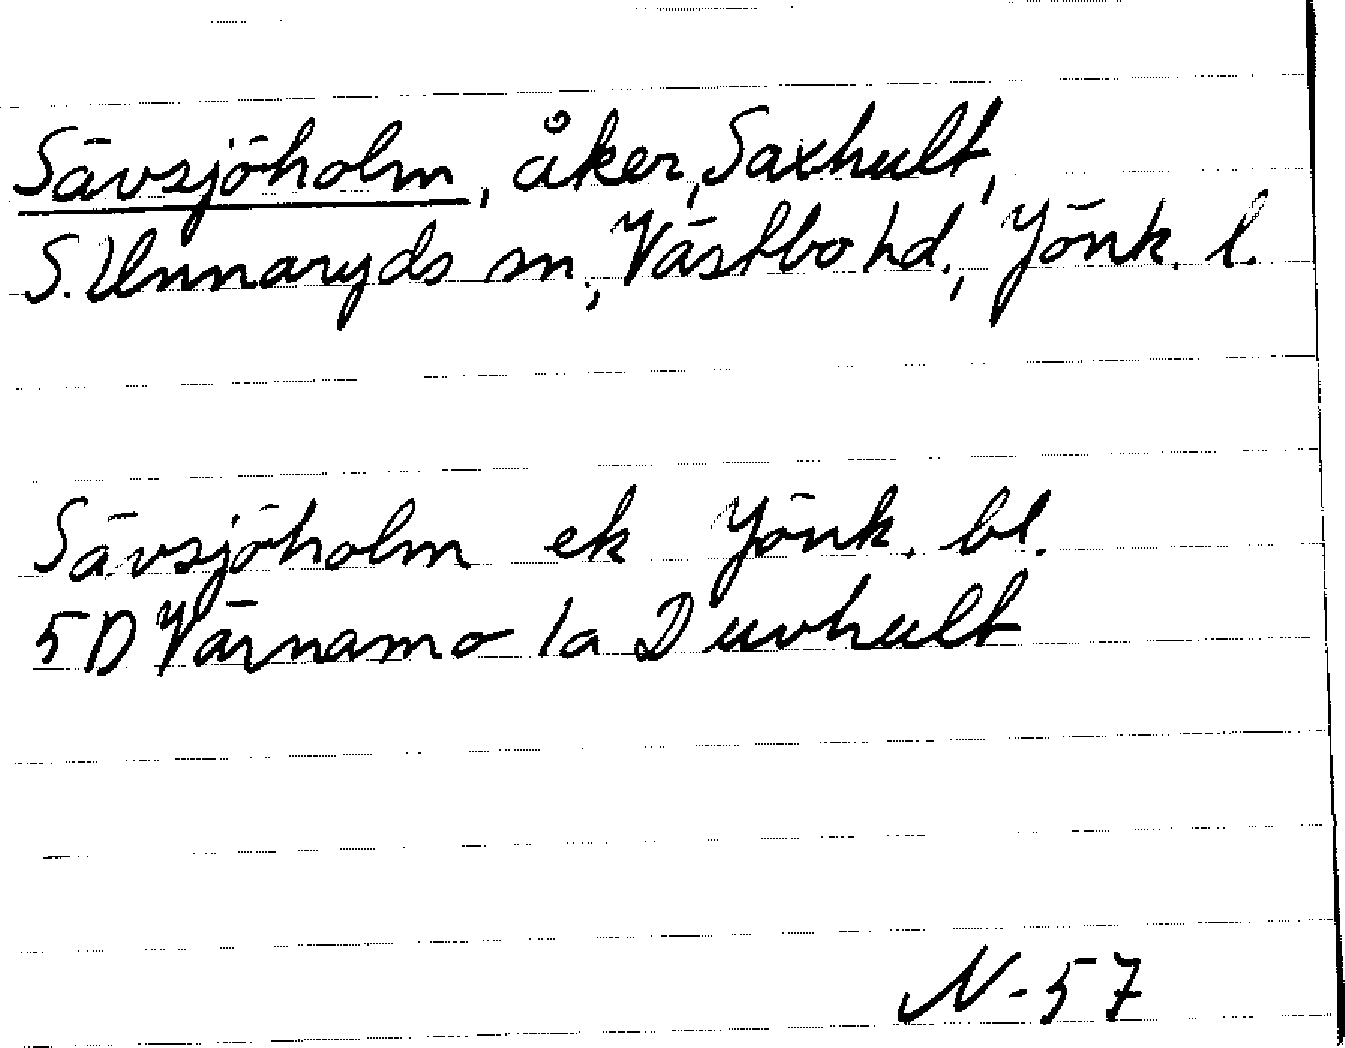 Sävsjöholm, åker, Saxhult,
S. Unnaryds sn, Västbo hd., Jönk. l.
Sävsjöholm ek Jönk. bl.
5D Värnamo 1a Duvhult
N-57